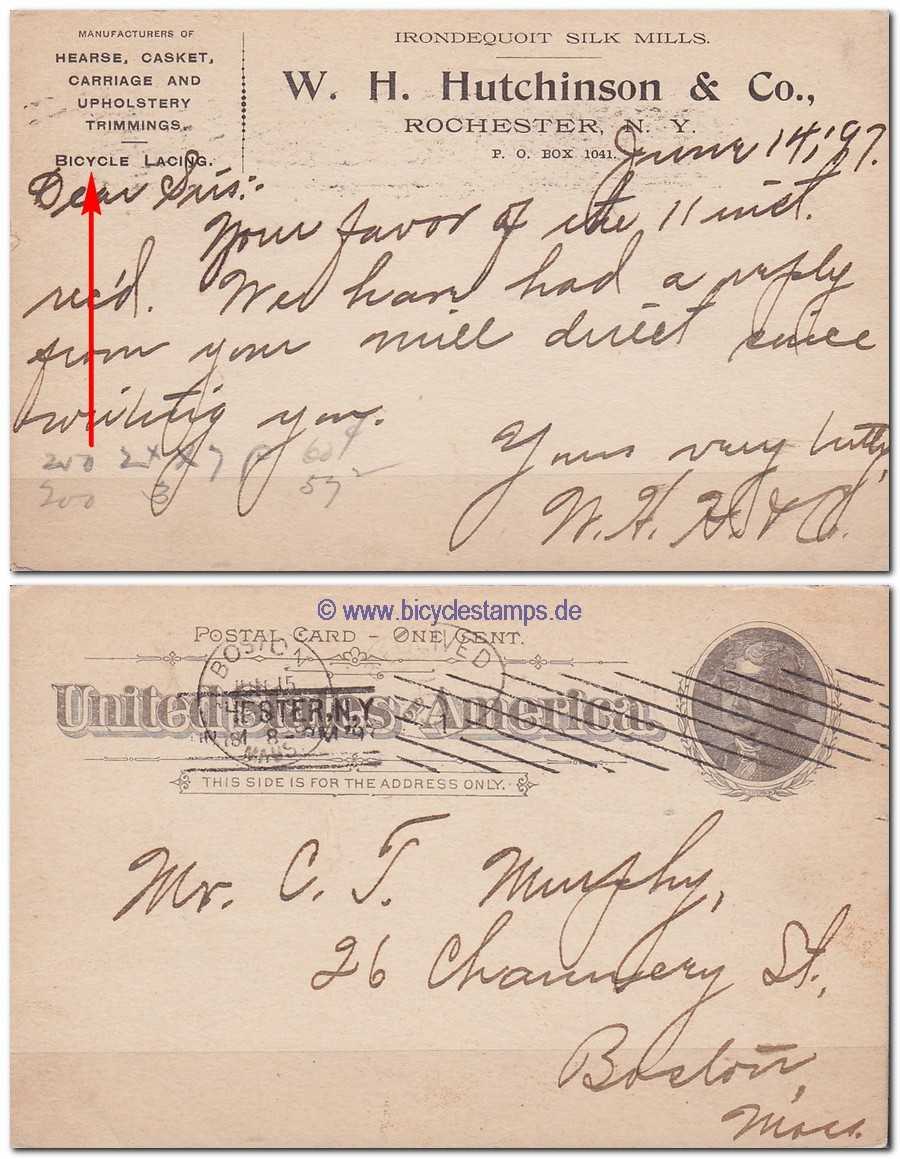 MANUFACTURERS OF
HEARSE, CASKET,
CARRIAGE AND
UPHOLSTERY
TRIMMINGS.
BICYCLE LACING.
IRONDEQUOIT SILK MILLS.
W. H. Hutchinson & Co.,
ROCHESTER, N. Y.
P. O. BOX 1041.
June 14, '97.
Dear Sirs:-
Your favor of the 11 inst.
rec'd. We have had a reply
from your mill direct since
writing you.
Yours very truly,
W. H. H. & Co.
200
200 3
© www.bicyclestamps.de
POSTAL CARD - ONE CENT.
United States of America.
THIS SIDE IS FOR THE ADDRESS ONLY.
BOSTON
JUN 15
MASS
HESTER, N.Y.
Mr. C. T. Murphy,
26 Chauncery St,
Boston,
Mass.